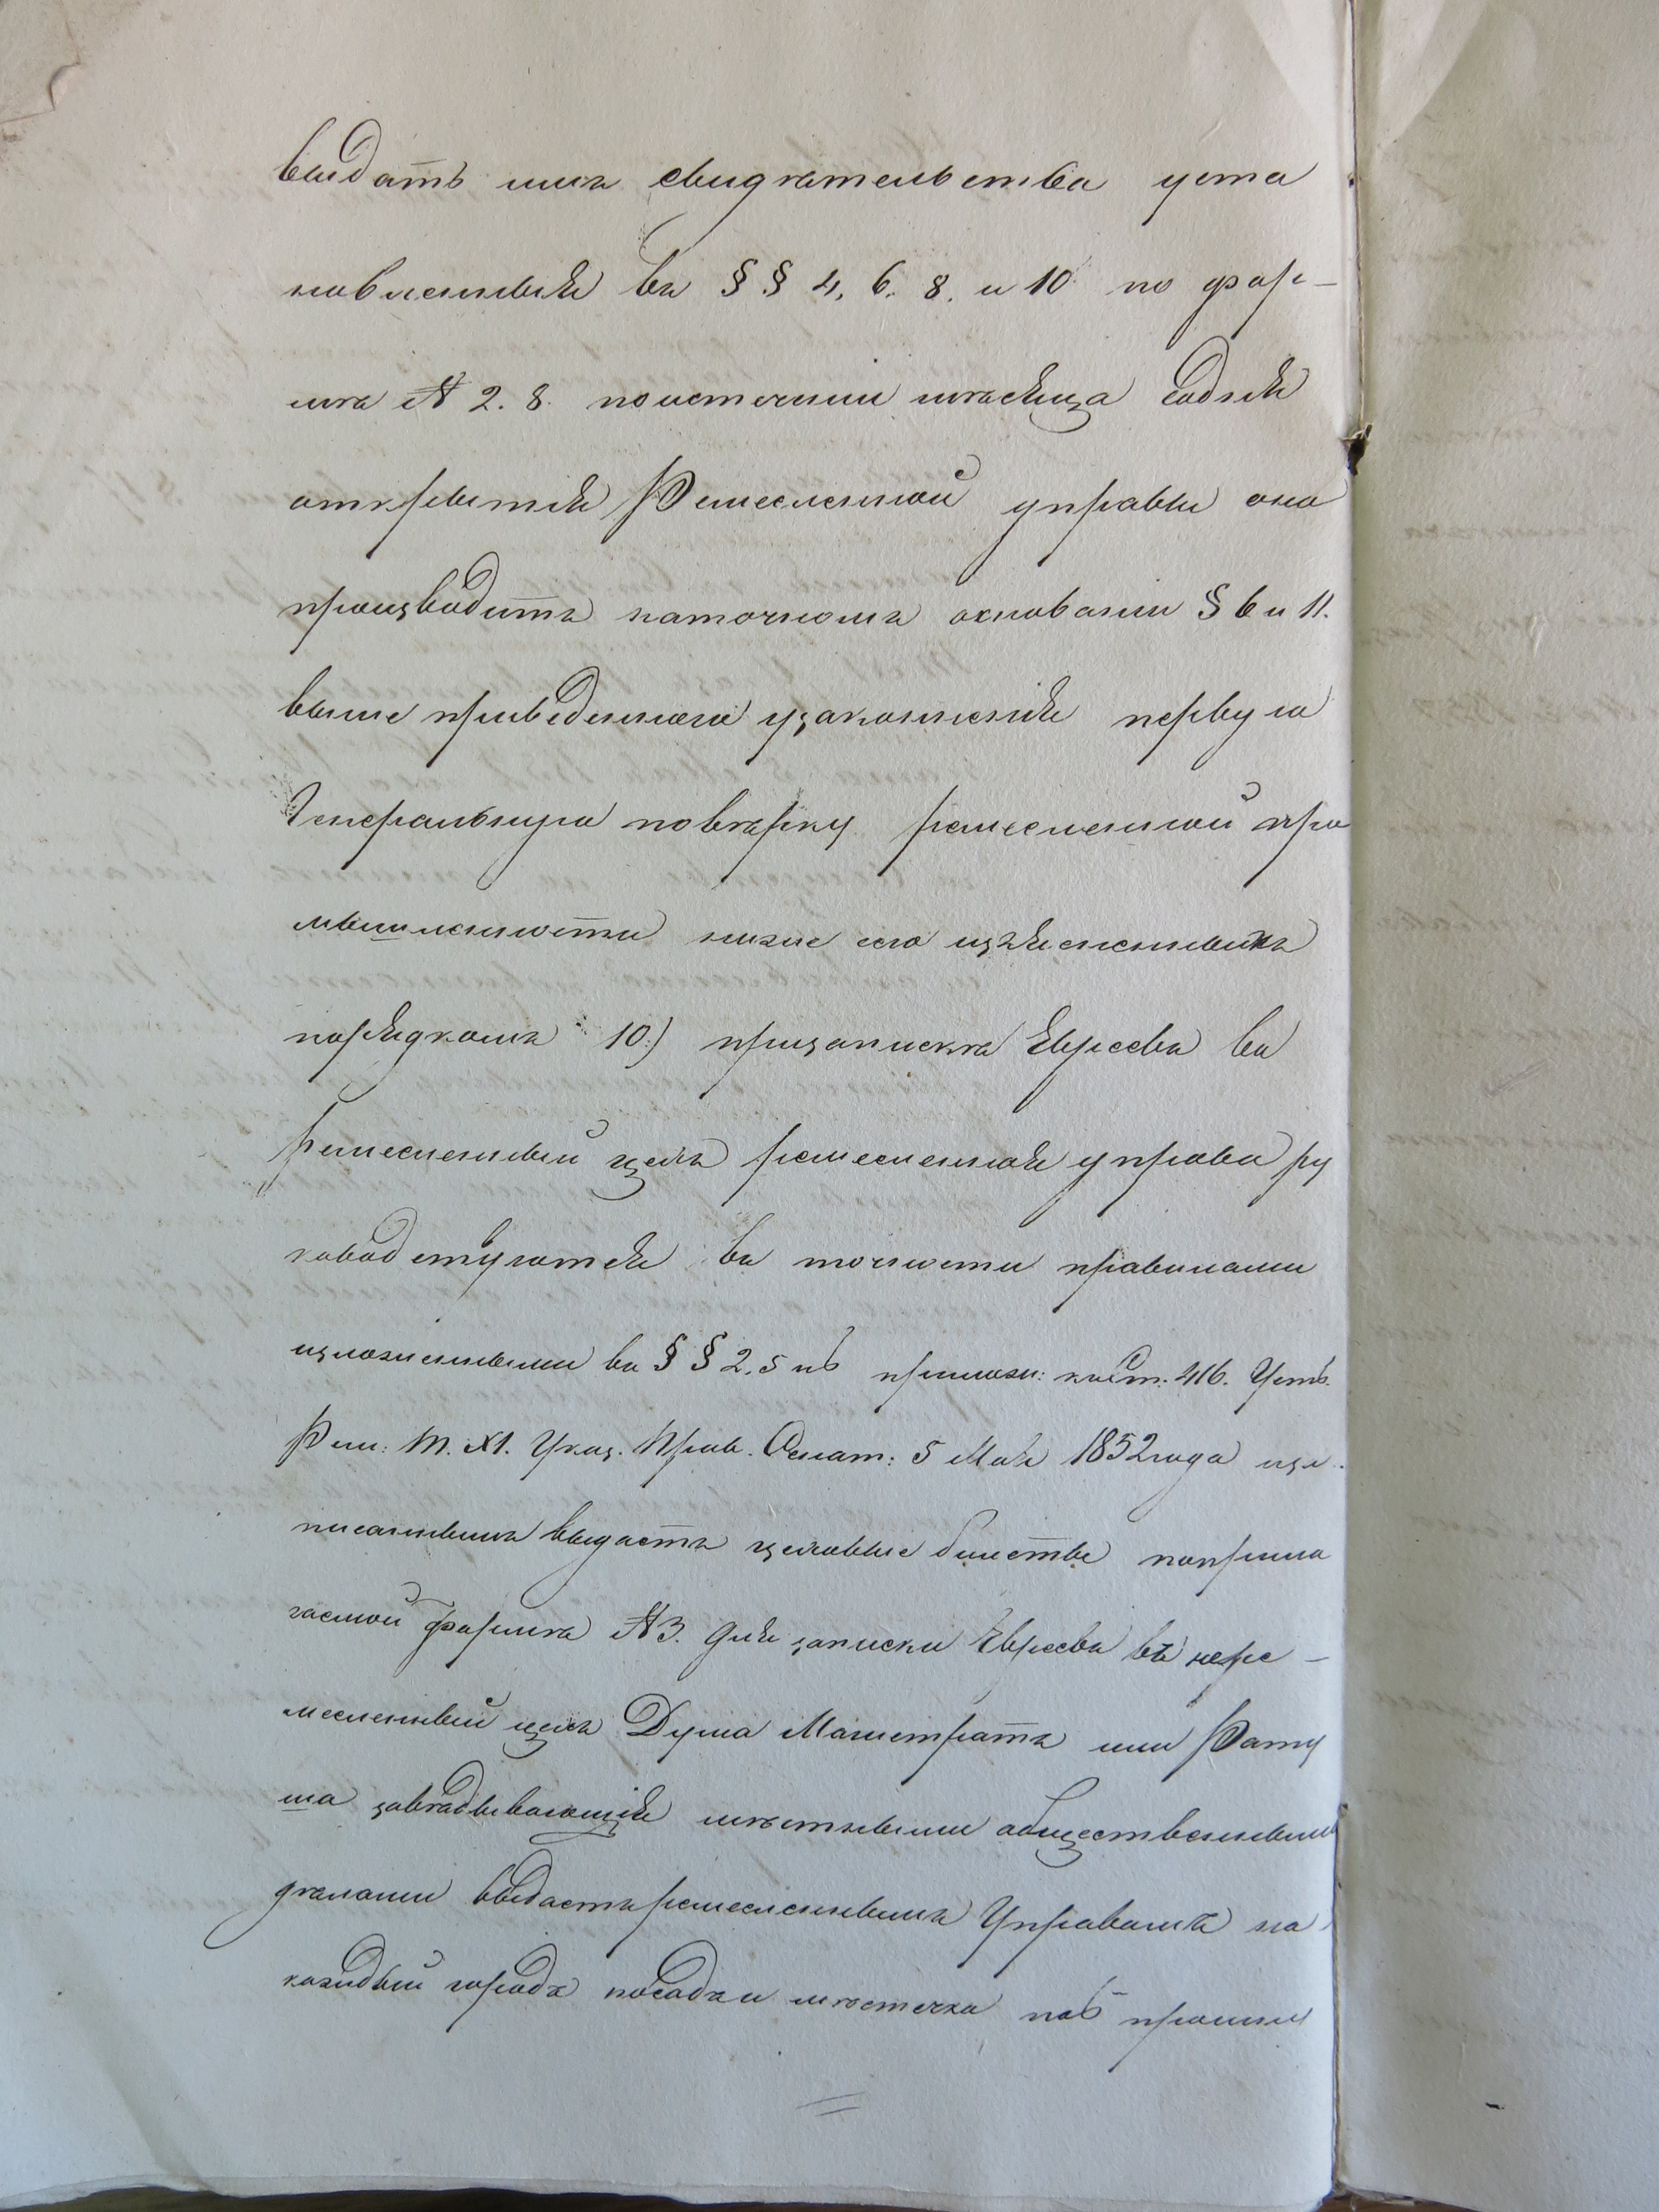 выдать имъ свидѣтельства уста
новленныя въ §§ 4, 6. 8. и 10 по фор-
мѣ № 2. 8. поистеченіи мѣсяца содня
открытія Ремесленной управы она
производитъ наточномъ основаніи § 6 и 11.
выше приведеннаго узаконенія первую
Генеральную повѣрку ремесленной про
мышленности ниже сего изъясненнымъ
порядкомъ 10) призапискѣ Евреевъ въ
ремесленный цехъ ремесленная управа ру
ководствуются въ точности правилами
изложенными въ §§ 2. 5 и 6 прилож: къ ст. 416. Уств.
Рем: Т. XI. Указ. Прав. Сенат: 5 Мая 1852 года
писаннымъ выдастъ цеховые билеты поприла
гаемой формѣ № 3. для записки Евреевъ въ нере-
месленный цехъ Дума Магистратъ или Рату
ша завѣдывающія мѣстными общественными
дѣлами выдастъ ремесленнымъ Управамъ на
каждый городъ посадъ и мѣстечко